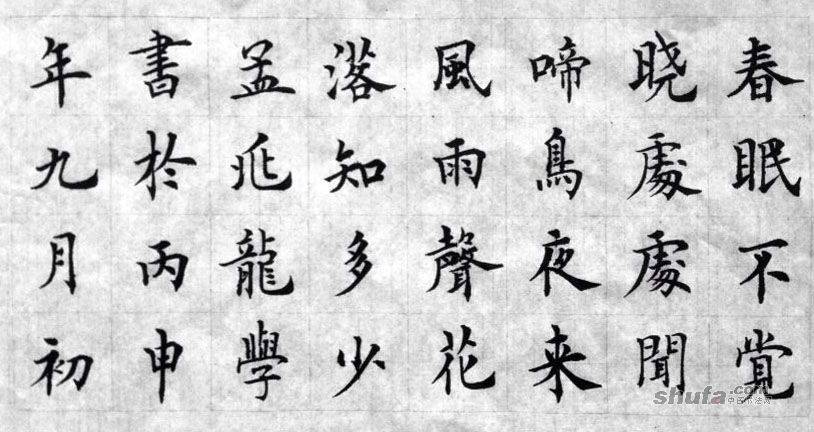 春眠不覺
晓處處聞
啼鳥夜来
風雨聲花
落知多少
孟兆龍學
書於丙申
年九月初
shufa.com
中国书法网